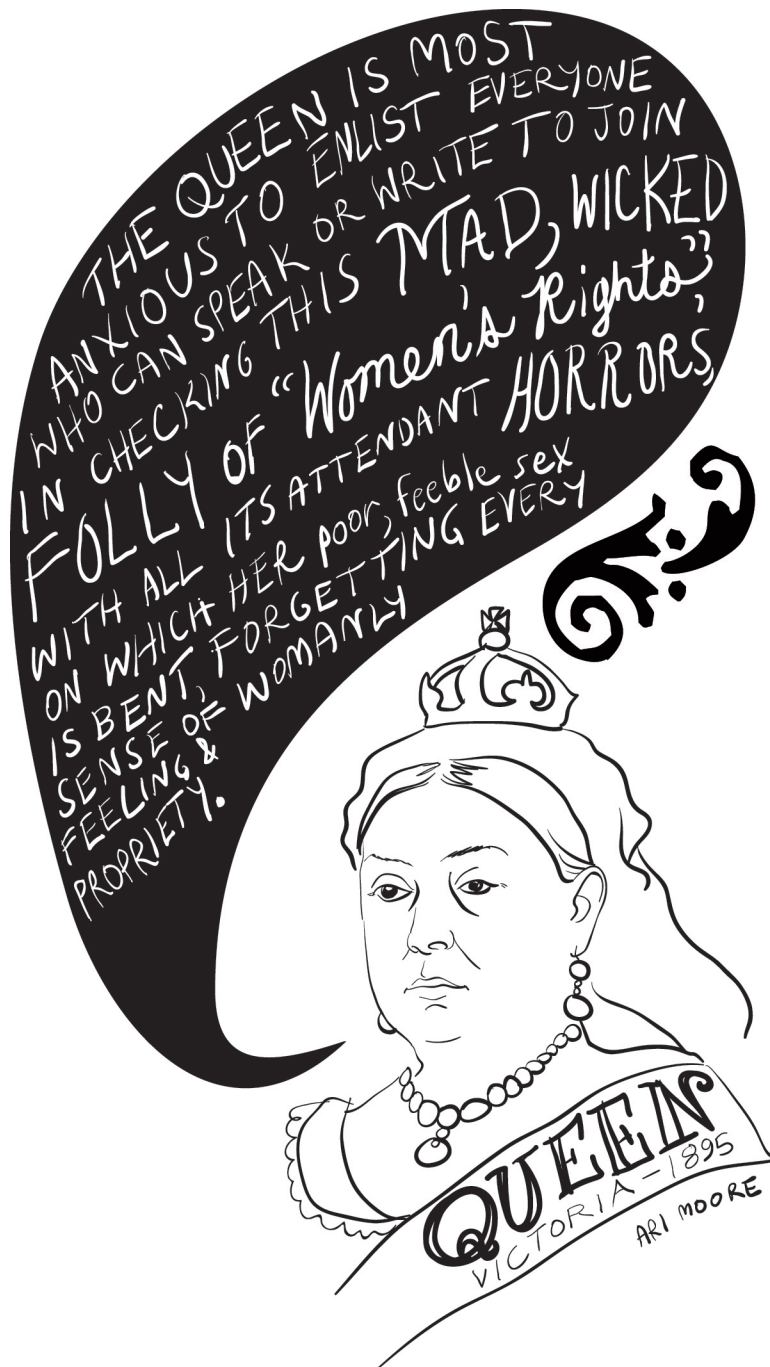 THE QUEEN IS MOST
ANXIOUS TO ENLIST EVERYONE
WHO CAN SPEAK OR WRITE TO JOIN
IN CHECKING THIS MAD, WICKED
FOLLY OF "Women's Rights",
WITH ALL ITS ATTENDANT HORRORS,
ON WHICH HER poor, feeble sex
IS BENT, FORGETTING EVERY
SENSE OF WOMANLY
FEELING &
PROPRIETY.
QUEEN
VICTORIA-1895
ARI MOORE